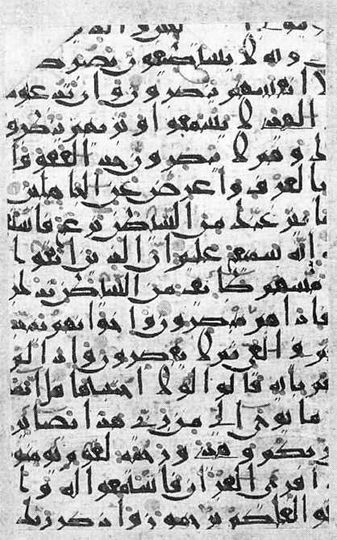 دونه لا يستطيعون نصركم
لا انفسهم ينصرون وان تدعو
الهدى لا يسمعوا وتريهم ينظرو
ك وهم لا يبصرون خذ العفو وا
بالعرف واعرض عن الجهلين
ما ينزغنك من الشيطن نزغ فاستعذ
انه سميع عليم ان الذين اتقوا ا
مسهم طئف من الشيطن تذكر
فاذا هم مبصرون واخونهم يمد
في الغي ثم لا يقصرون واذا لم
تهم باية قالوا لولا اجتبيتها قل انما
ما يوحى الي من ربي هذا بصائر
ربكم وهدى ورحمة لقوم يومنو
ا قرئ القران فاستمعوا له وا
توا لعلكم ترحمون واذكر ربك